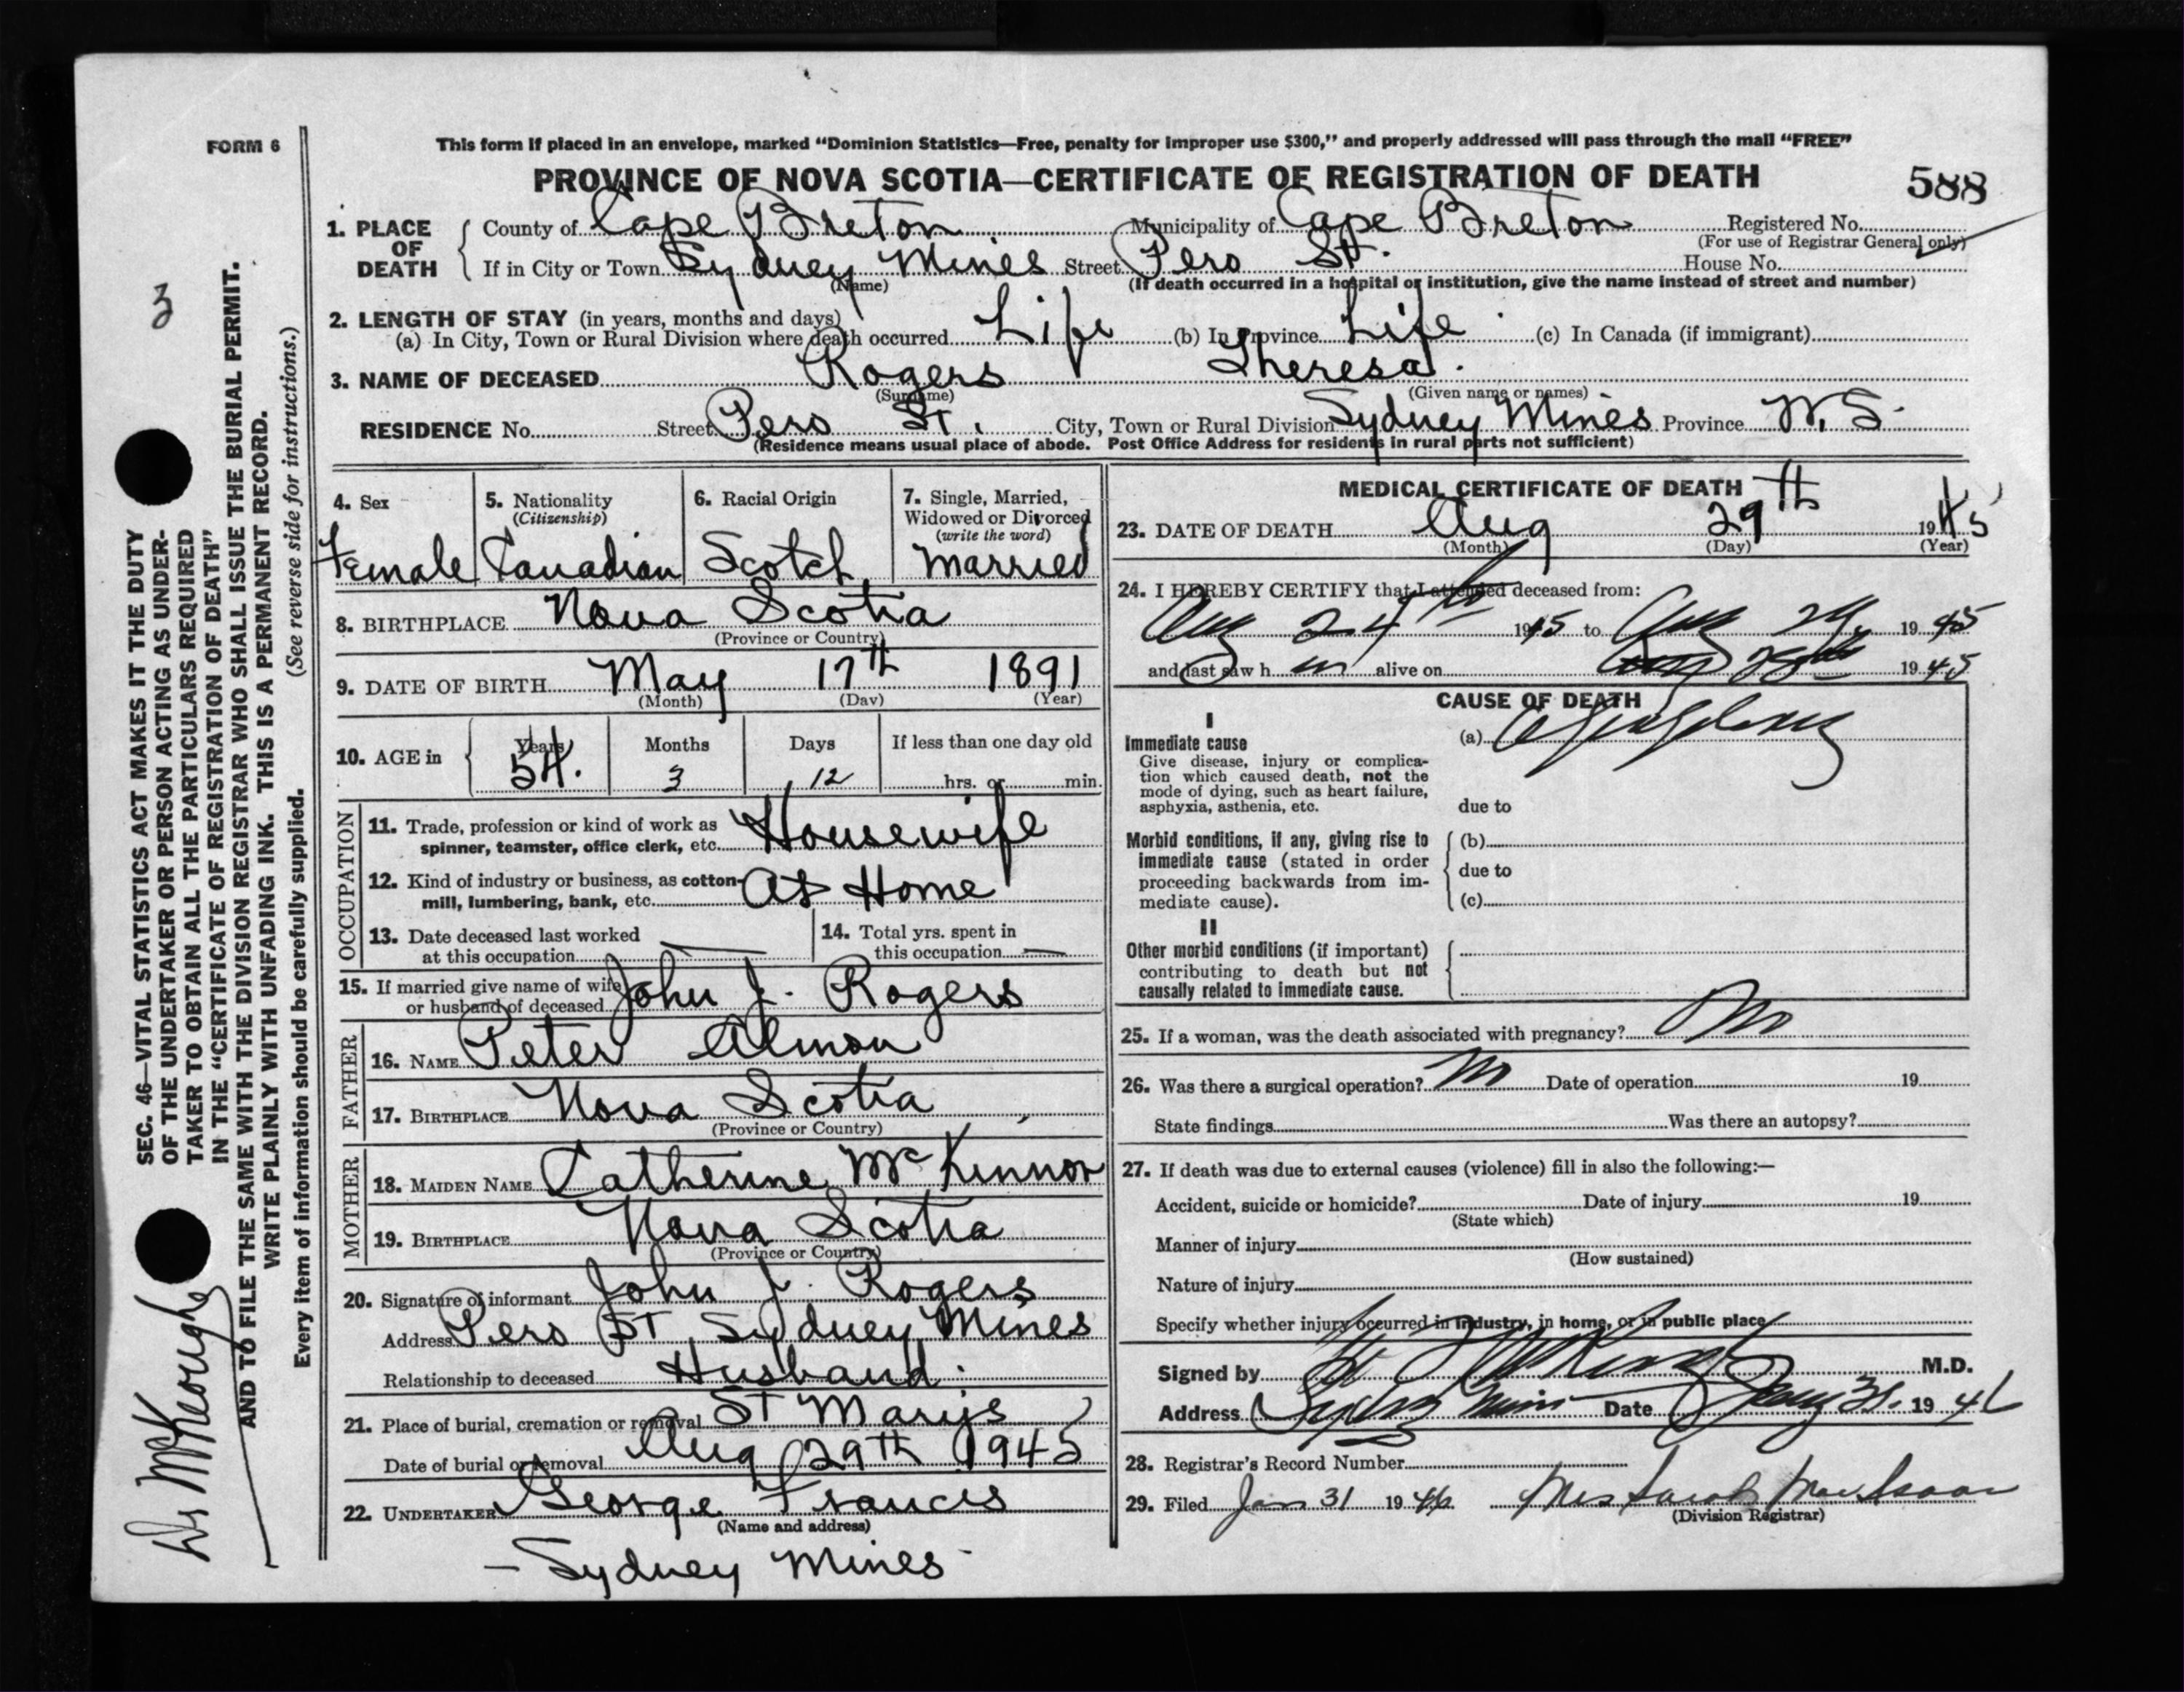 FORM 6
This form if placed in an envelope, marked "Dominion Statistics—Free, penalty for improper use $300," and properly addressed will pass through the mail "FREE"
PROVINCE OF NOVA SCOTIA—CERTIFICATE OF REGISTRATION OF DEATH
588
1. PLACE OF DEATH
County of Cape Breton Municipality of Cape Breton Registered No.
(For use of Registrar General only)
If in City or Town Sydney Mines Street Pero St. House No.
(Name) (If death occurred in a hospital or institution, give the name instead of street and number)
2. LENGTH OF STAY (in years, months and days)
(a) In City, Town or Rural Division where death occurred Life (b) In Province Life (c) In Canada (if immigrant)
3. NAME OF DECEASED Rogers Theresa.
(Surname) (Given name or names)
RESIDENCE No. Street Pero St. City, Town or Rural Division Sydney Mines Province N.S.
(Residence means usual place of abode. Post Office Address for residents in rural parts not sufficient)
4. Sex
Female
5. Nationality
(Citizenship)
Canadian
6. Racial Origin
Scotch
7. Single, Married,
Widowed or Divorced
(write the word)
Married
8. BIRTHPLACE Nova Scotia
(Province or Country)
9. DATE OF BIRTH May 17th 1891
(Month) (Day) (Year)
10. AGE in
Years Months Days If less than one day old
54. 3 12 hrs. or min.
OCCUPATION
11. Trade, profession or kind of work as
spinner, teamster, office clerk, etc. Housewife
12. Kind of industry or business, as cotton-
mill, lumbering, bank, etc. At Home
13. Date deceased last worked
at this occupation —
14. Total yrs. spent in
this occupation —
15. If married give name of wife
or husband of deceased John J. Rogers
FATHER
16. NAME Peter Almon
17. BIRTHPLACE Nova Scotia
(Province or Country)
MOTHER
18. MAIDEN NAME Catherine McKinnon
19. BIRTHPLACE Nova Scotia
(Province or Country)
20. Signature of informant John J. Rogers
Address Pero St, Sydney Mines
Relationship to deceased Husband.
21. Place of burial, cremation or removal St Marys
Date of burial or removal Aug 29th 1945
22. UNDERTAKER George Francis
(Name and address)
- Sydney Mines -
MEDICAL CERTIFICATE OF DEATH
23. DATE OF DEATH Aug 29th 1945
(Month) (Day) (Year)
24. I HEREBY CERTIFY that I attended deceased from:
Aug 24th 1945 to Aug 29, 19 45
and last saw h alive on 19 45
CAUSE OF DEATH
I
Immediate cause
Give disease, injury or complica-
tion which caused death, not the
mode of dying, such as heart failure,
asphyxia, asthenia, etc.
(a)
due to
Morbid conditions, if any, giving rise to
immediate cause (stated in order
proceeding backwards from im-
mediate cause).
(b)
due to
(c)
II
Other morbid conditions (if important)
contributing to death but not
causally related to immediate cause.
25. If a woman, was the death associated with pregnancy? No
26. Was there a surgical operation? No Date of operation 19
State findings Was there an autopsy?
27. If death was due to external causes (violence) fill in also the following:—
Accident, suicide or homicide? Date of injury 19
(State which)
Manner of injury
(How sustained)
Nature of injury
Specify whether injury occurred in industry, in home, or in public place
Signed by M.D.
Address Sydney Mines Date Jany 31. 19 46
28. Registrar's Record Number
29. Filed Jan 31 1946 Mrs Sarah MacIsaac
(Division Registrar)
3
SEC. 46—VITAL STATISTICS ACT MAKES IT THE DUTY
OF THE UNDERTAKER OR PERSON ACTING AS UNDER-
TAKER TO OBTAIN ALL THE PARTICULARS REQUIRED
IN THE "CERTIFICATE OF REGISTRATION OF DEATH"
AND TO FILE THE SAME WITH THE DIVISION REGISTRAR WHO SHALL ISSUE THE BURIAL PERMIT.
WRITE PLAINLY WITH UNFADING INK. THIS IS A PERMANENT RECORD.
Every item of information should be carefully supplied. (See reverse side for instructions.)
Dr McKeough